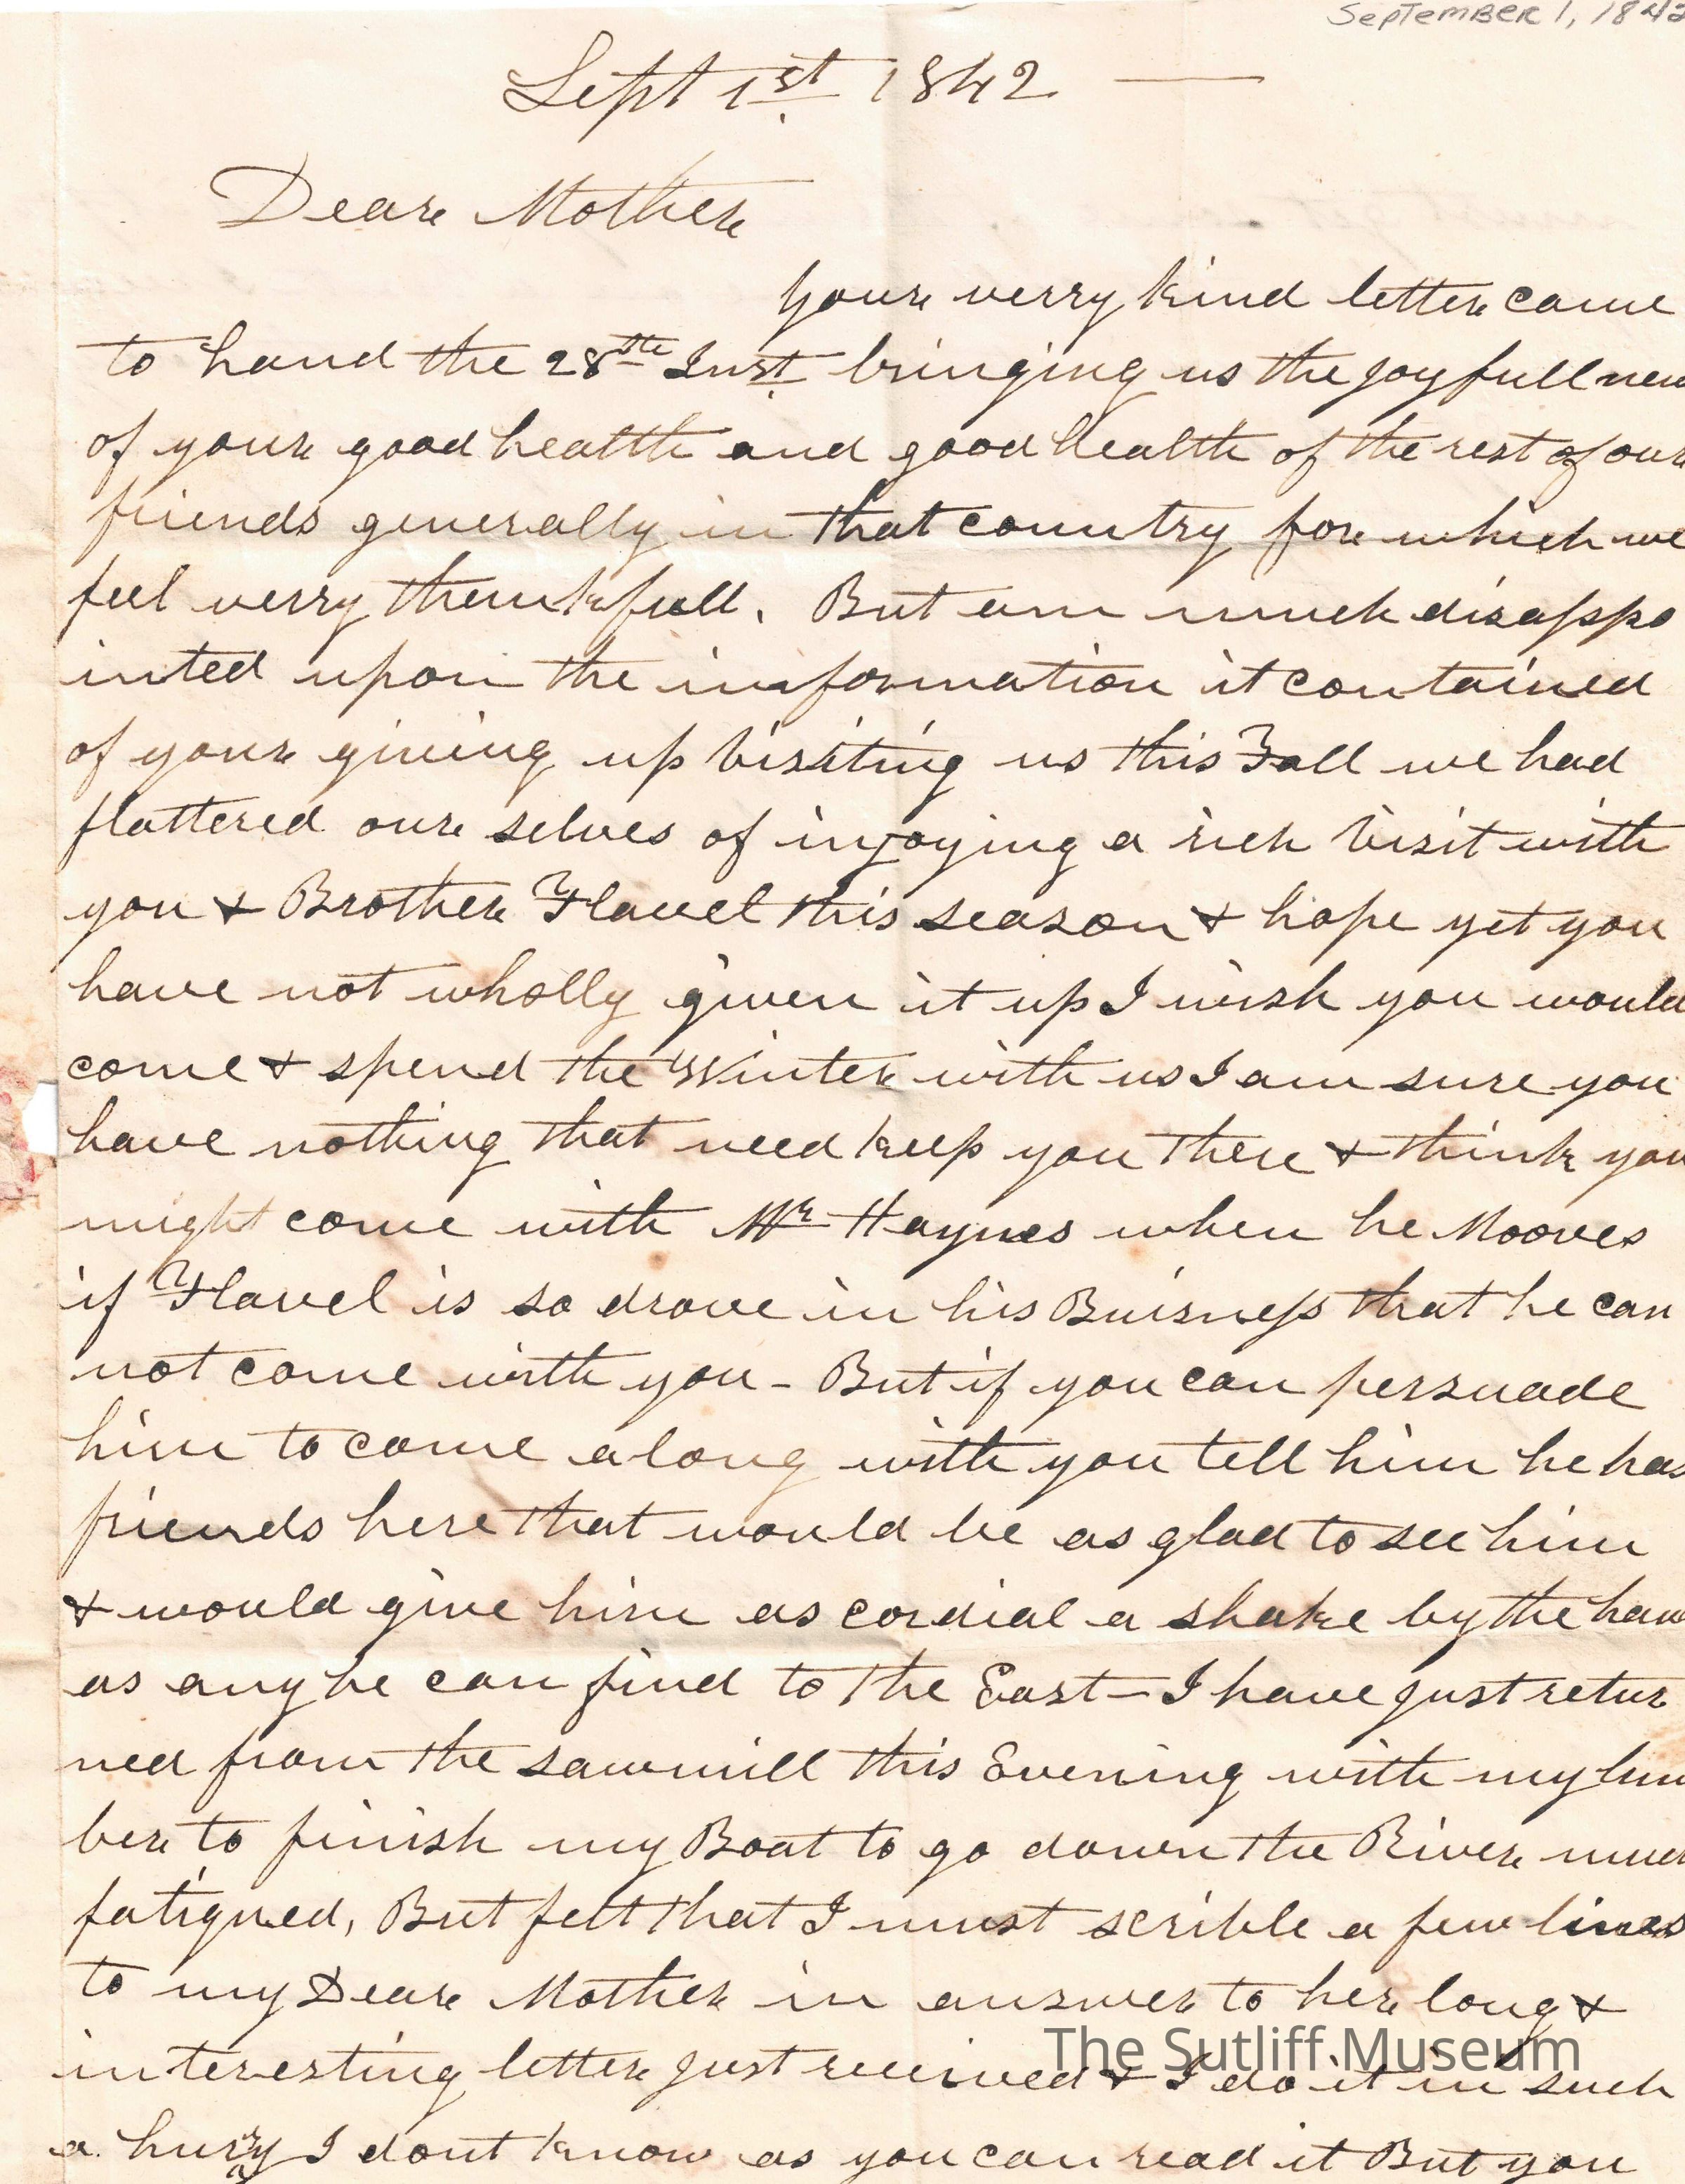 September 1, 1842
Sept 1st 1842 —
Dear Mother
your verry kind letter came
to hand the 28th Inst bringing us the joyfull new
of your good health and good health of the rest of our
friends generally in that country for which we
feel verry thankfull. But am much disappo
inted upon the information it contained
of your giving up visiting us this Fall we had
flattered our selves of injoying a rich visit with
you & Brother Flavel this season & hope yet you
have not wholly given it up I wish you would
come & spend the Winter with us I am sure you
have nothing that need keep you there & think you
might come with Mr Haynes when he Mooves
if Flavel is so drove in his Buisness that he can
not come with you - But if you can persuade
him to come along with you tell him he has
friends here that would be as glad to see him
& would give him as cordial a shake by the han
as any he can find to the East — I have just retur
ned from the sawmill this Evening with my lum
ber to finish my Boat to go down the River much
fatigued, But felt that I must scrible a few lines
to my Dear Mother in answer to her long &
interesting letter just received & I do it in such
a hurry I dont know as you can read it But you
The Sutliff Museum